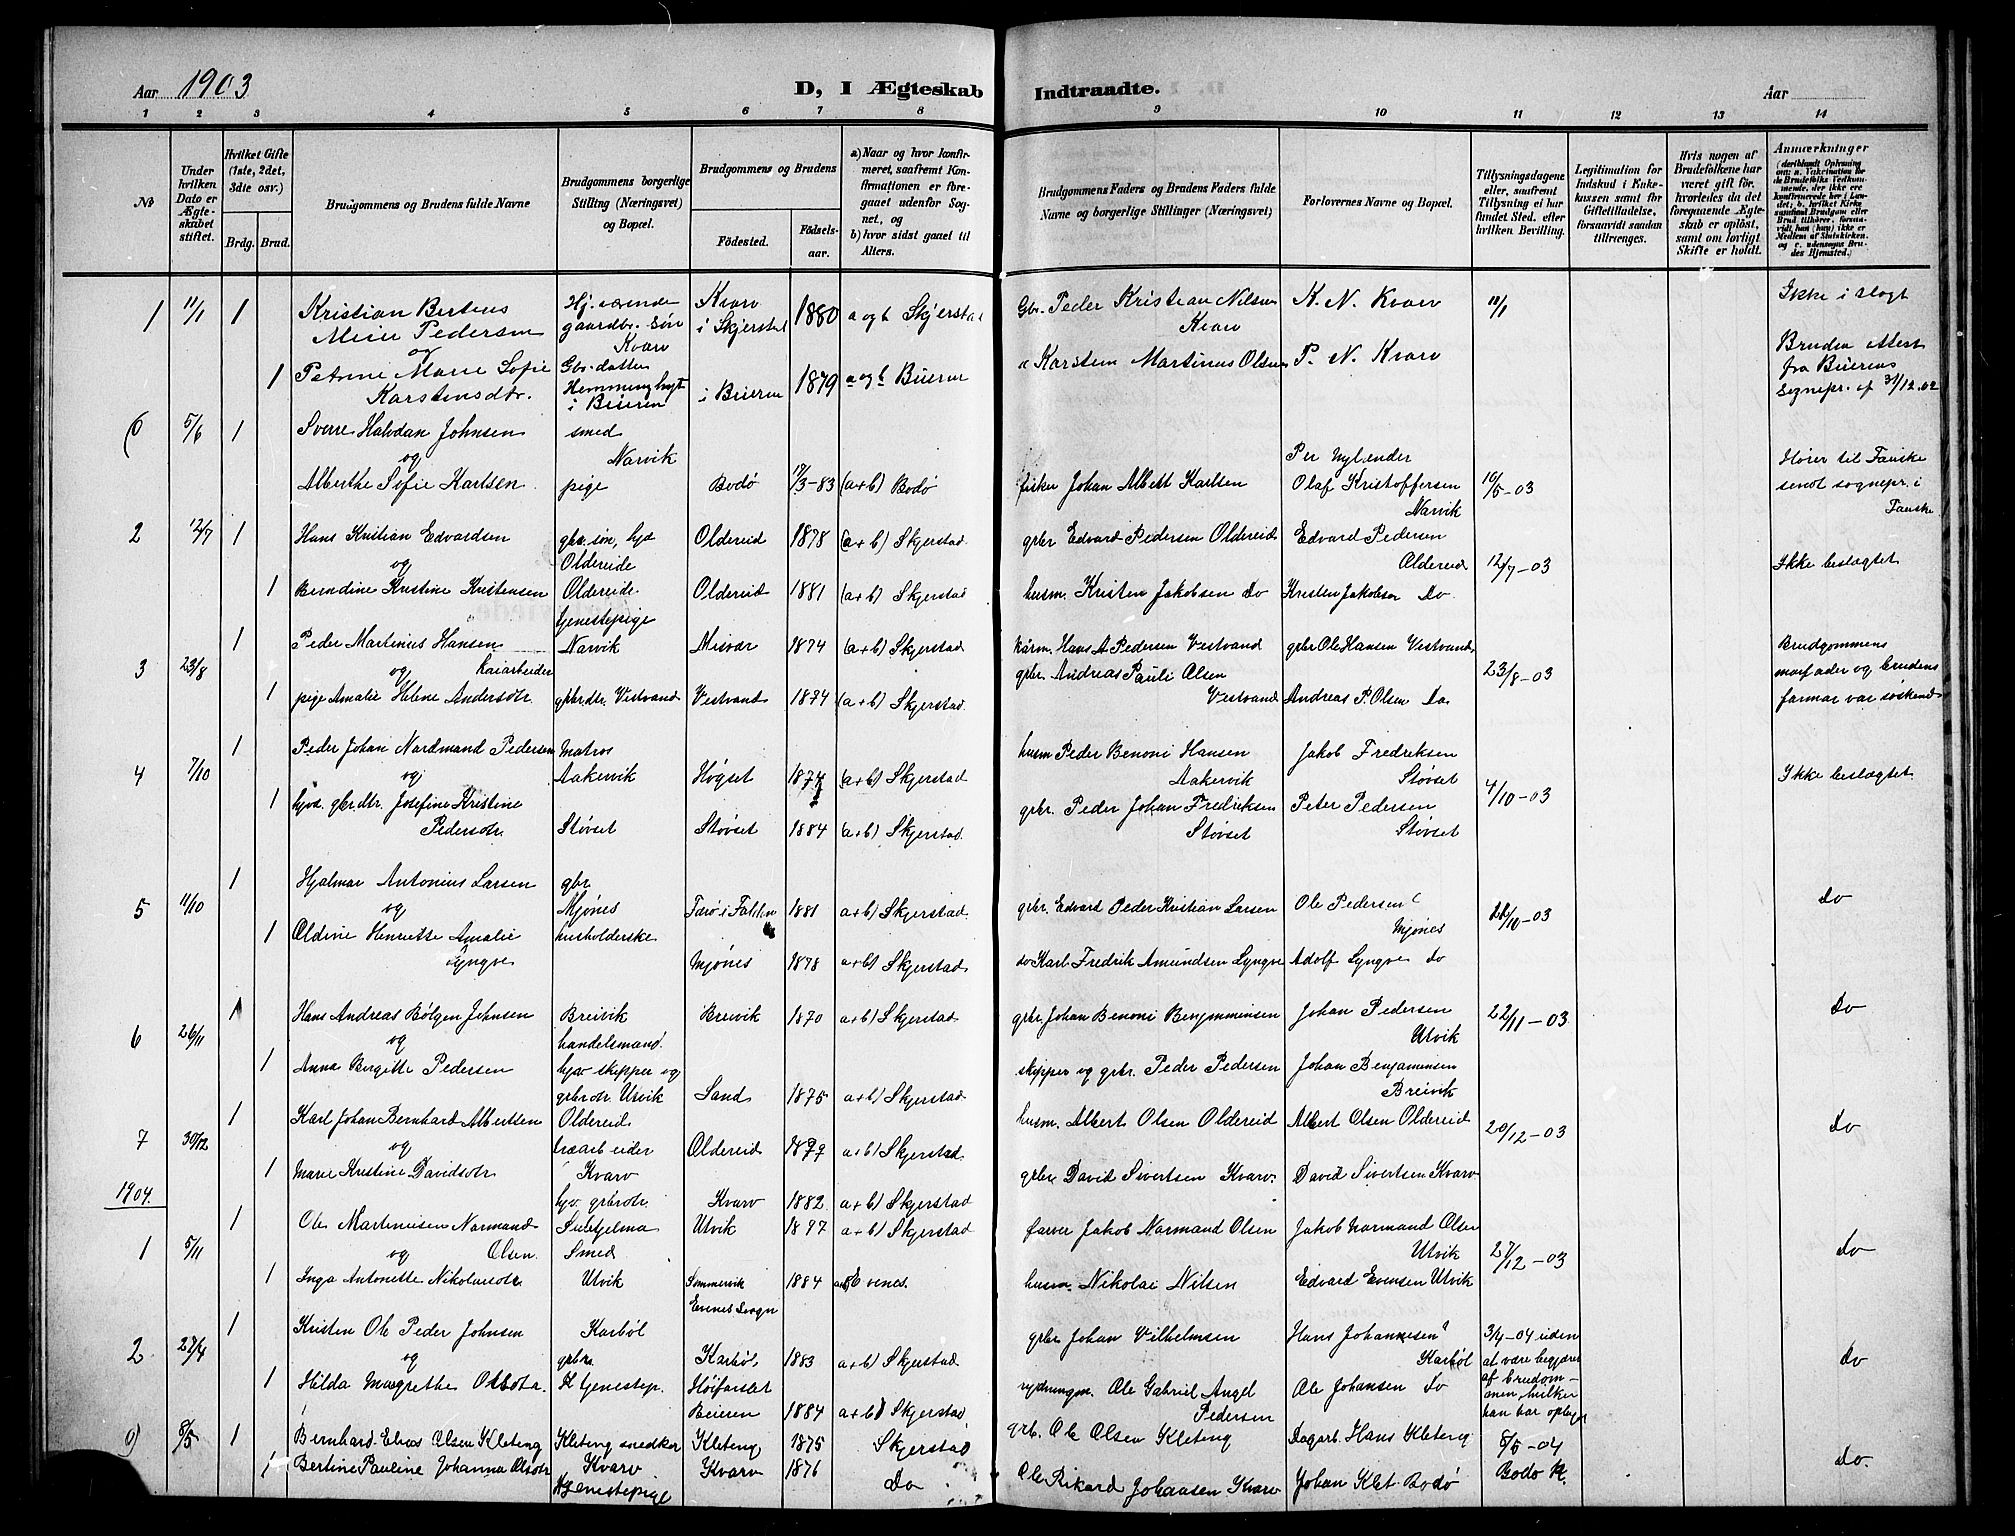 Aar 1903
D, I Ægteskab Indtraadte.
Aar
1 2 3 4 5 6 7 8 9 10 11 12 13 14
No
Under hvilken Dato er Ægteskabet stiftet.
Hvilket Gifte (1ste, 2det, 3die osv.)
Brdg. Brud.
Brudgommens og Brudens fulde Navne
Brudgommens borgerlige Stilling (Næringsvei) og Bopæl.
Brudgommens og Brudens
Fødested. Fødselsaar.
a) Naar og hvor konfirmeret, saafremt Konfirmationen er foregaaet udenfor Sognet, og
b) hvor sidst gaaet til Alters.
Brudgommens Faders og Brudens Faders fulde Navne og borgerlige Stillinger (Næringsvei)
Forlovernes Navne og Bopæl.
Tillysningsdagene eller, saafremt Tillysning ei har fundet Sted, efter hvilken Bevilling.
Legitimation for Indskud i Enkekassen samt for Giftetilladelse, forsaavidt saadan tiltrænges.
Hvis nogen af Brudefolkene har været gift før, hvorledes da det foregaaende Ægteskab er opløst, samt om lovligt Skifte er holdt.
Anmærkninger
(deriblandt Oplysning om: a. Vakcination for de Brudefolks Vedkommende, der ikke ere konfirmerede her i Landet; b. hvilket Kirkesamfund Brudgom eller Brud tilhører, forsaavidt han (hun) ikke er Medlem af Statskirken, og c. udensogns Brudes Hjemsted.)
1 11/1 1 Kristian Bertius Meier Pedersen Hj. værende gaardbr. søn Kvarv Kvarv i Skjerstad 1880 a og b Skjerstad Gbr. Peder Kristian Nilsen Kvarv K. N. Kvarv 11/1 Ikke i slægt
og
1 Petrine Marie Sofie Karstensdtr. Gbr. datter i Beieren i Beieren 1879 a og b Beieren " Karsten Martinus Olsen P. N. Kvarv Brudea attest fra Beierens Sognepr. af 31/12.02
5/6 1 Sverre Halvdan Johnsen smed Narvik
og
Alberthe Sofie Karlsen pige Bodø 17/3-83 (a+b) Bodø fisker Johan Albert Karlsen Per Nylænder Olaf Kristoffersen Narvik 10/5-03 Hører til Fauske sendt sognepr. i Fauske
2 12/7 1 Hans Kristian Edvardsen gbr. søn, hje Oldereide Oldereid 1878 (a+b) Skjerstad grbr Edvard Pedersen Oldereid Edvard Pedersen Oldereid 12/7-03 Ikke beslægtet
og
1 Berndine Kristine Kristensen Oldereide tjenestepige Oldereid 1881 (a+b) Skjerstad husm. Kristen Jakobsen do Kristen Jakobsen Do
3 23/8 1 Peder Martinius Hansen kaiarbeider Narvik Misvær 1874 (a+b) Skjerstad kårm. Hans A Pedersen Vestvand grbr Ole Hansen Vestvand 23/8-03 Brudgommens morfader og brudens farmor var søskend
og
1 pige Amalie Helene Andersdtr. grbr.dtr. Vestvand Vestvand 1874 (a+b) Skjerstad grbr. Andreas Pauli Olsen Vestvand Andreas P. Olsen Do
4 7/10 1 Peder Johan Nordmand Pedersen Matros Aakervik Høgset 1874 (a+b) Skjerstad husm Peder Benoni Hansen Aakervik Jakob Fredriksen Støvset 4/10-03 Ikke beslægtet
og
1 hjvd. gbr.dtr. Josefine Kristine Pedersdtr. Støvset Støvset 1884 (a+b) Skjerstad grbr. Peder Johan Fredriksen Støvset Peter Pedersen Støvset
5 11/10 1 Hjalmar Antonius Larsen gbr Mjønes 1881 a+b) Skjerstad grbr. Edvard Peder Kristian Larsen Ole Pedersen Mjønes do
og
1 Oldine Henriette Amalie Lyngve husholderske Mjønes 1878 a+b) Skjerstad do Karl Fredrik Amundsen Lyngve Adolf Lyngve do
6 26/11 1 Hans Andreas Bølgen Johnsen Breivik handelsmand. Breivik 1870 a+b) Skjerstad grbr Johan Benoni Benjaminsen Johan Pedersen Utvik 22/11-03 Do
og
1 Anna Bergitte Pedersen hjv skipper og grbr dtr. Utvik Sand 1875 a+b) Skjerstad skipper og grbr. Peder Pedersen Johan Benjaminsen Breivik
7 30/12 1 Karl Johan Bernhard Albertsen Oldereid træarbeider Oldereid a+b) Skjerstad husm. Albert Olsen Oldereid Albert Olsen Oldereid 20/12-03 Do
og
1 Marie Kristine Davidsdtr Kvarv hjv grbrdtr. Kvarv 1882 a+b) Skjerstad grbr David Sivertsen Kvarv. David Sivertsen Kvarv
1904.
1 5/11 1 Ole Martinusen Normand Olsen. Sulitjelma Smed Utvik a+b) Skjerstad farver Jakob Normand Olsen Jakob Normand Olsen Utvik 27/12-03 do
og
1 Inga Antonette Nikolaisdtr Utvik Sommervik Evenes Sogn 1884 a+b Evenes. husm. Nikolai Nilsen Edvard Evensen Utvik
2 27/4 1 Kristen Ole Peder Johnsen Karbøl grbr Karbøl 1883 a+b) Skjerstad grbr Johan Vilhelmsen Hans Johannesen Karbøl 3/4-04 uden at være begjæret af brudommen, hvilket han har oplyst Do
og
1 Hilda Margrethe Olsdtr. tjenestep. Høiforslet Beieren 1884 a+b) Skjerstad rydningsm. Ole Gabriel Angel Pedersen Ole Johansen do
8/5 1 Bernhard Elias Olsen Kleteng Kleteng snedker Kleteng 1875 Skjerstad grb. Ole Olsen Kleteng Dagarb. Hans Kleteng 8/5-04 Bodø Do.
1 Bertine Pauline Johanna Olsdtr Kvarv tjenestepige Kvarv 1876 Do Ole Rikard Johansen Kvarv Johan Klet Bodø